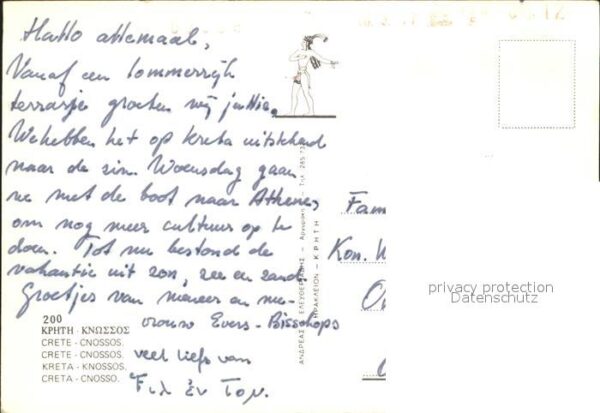 Hallo allemaal,
Vanaf een lommerrijk
terrasje groeten wij jullie.
We hebben het op kreta uitstekend
naar de zin. Woensdag gaan
we met de boot naar Athene,
om nog meer cultuur op te
doen. Tot nu bestond de
vakantie uit zon, zee en zand.
Groetjes van meneer en me-
vrouw Evers - Bisschops
veel liefs van
200
ΚΡΗΤΗ - ΚΝΩΣΣΟΣ
CRETE - CNOSSOS.
CRETE - CNOSSOS.
KRETA - KNOSSOS.
CRETA - CNOSSO.
ΑΝΔΡΕΑΣ ΕΛΕΥΘΕΡΙΑΔΗΣ
ΗΡΑΚΛΕΙΟΝ - ΚΡΗΤΗ
Fam
Kon. W
privacy protection
Datenschutz